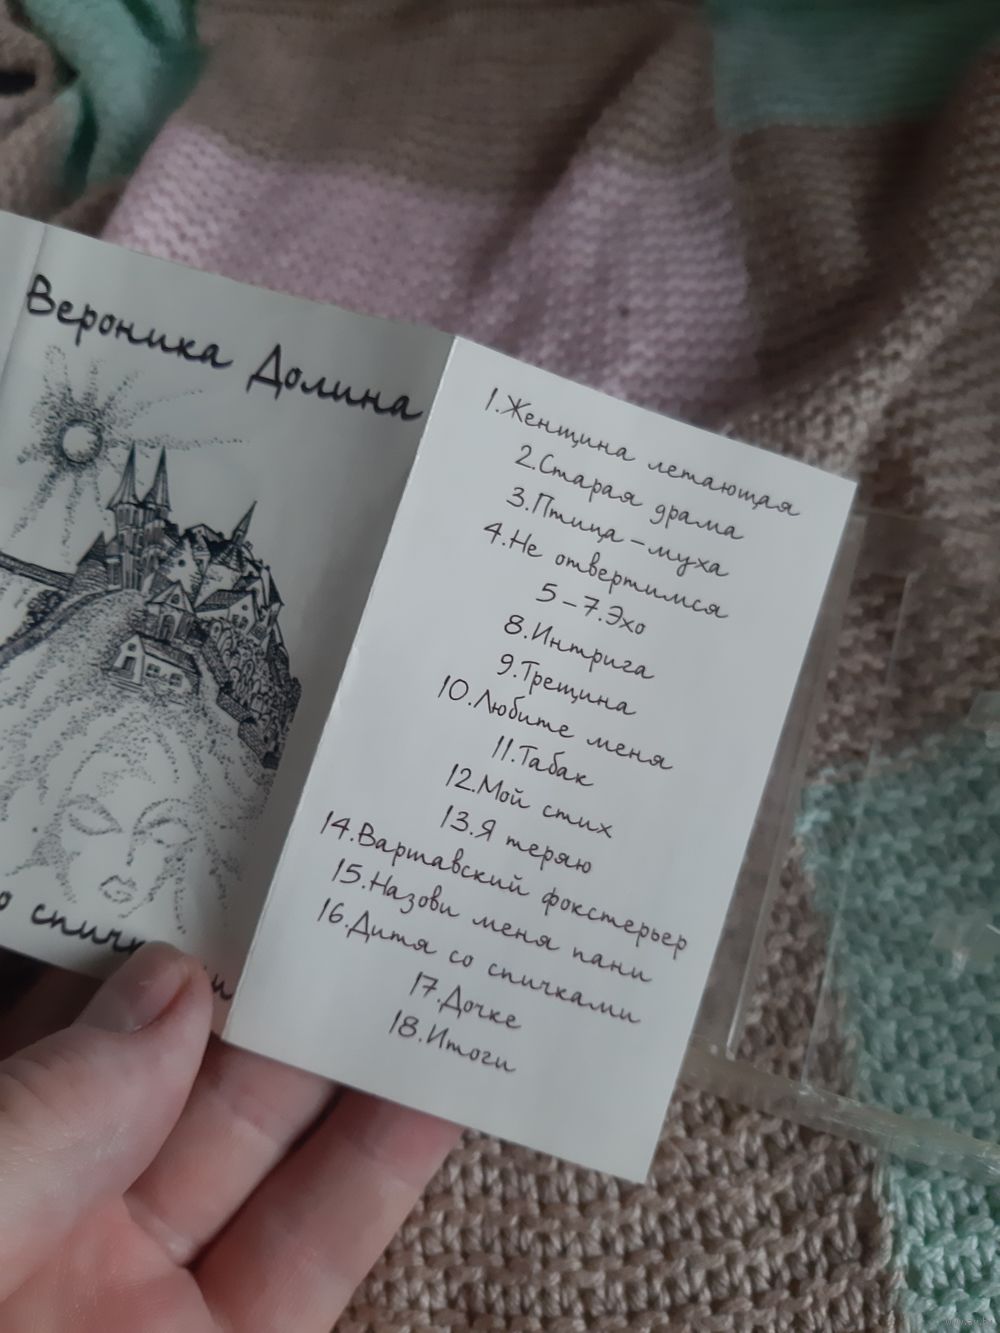 Вероника Долина
о спичками
1.Женщина летающая
2.Старая драма
3.Птица-муха
4.Не отвертимся
5-7.Эхо
8.Интрига
9.Трещина
10.Любите меня
11.Табак
12.Мой стих
13.Я теряю
14.Варшавский фокстерьер
15.Назови меня пани
16.Дитя со спичками
17.Дочке
18.Итоги